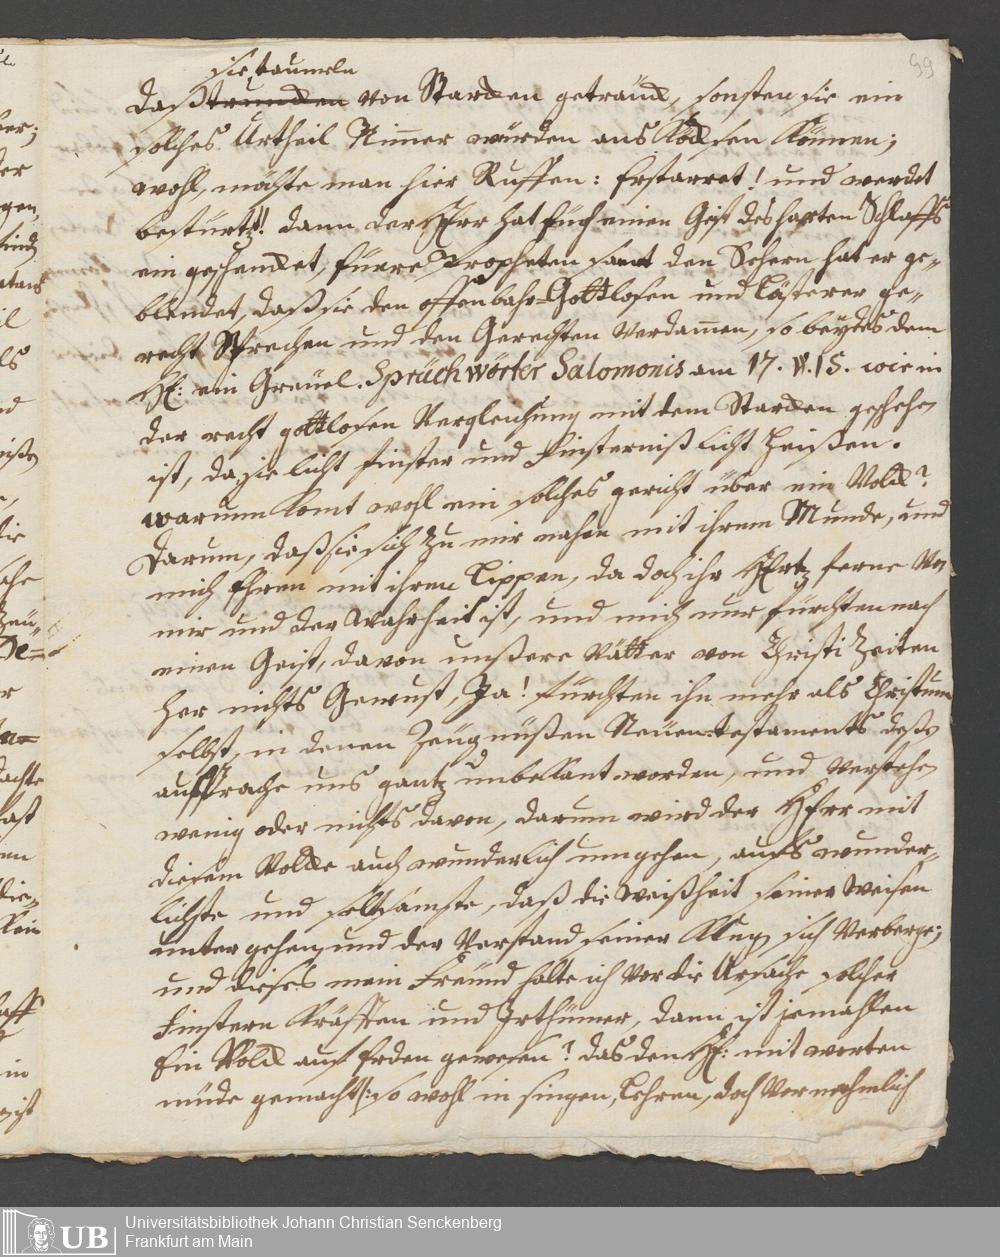 99
sie taumeln
daß trunden von Starcken getränck, sonsten sie ein
solches Urtheil Nimer würden aus köcksen können;
wohl, möchte man hier Ruffen: Erstarret! und werdet
bestürtzt! dann der HErr hat Euch einen Geist des harten Schlaffs
ein geschencket, Eüere Propheten samt den Sehern hat er ge-
blendet, daß sie den offenbahr-Gottlosen und Lästerer ge-
recht Sprechen und den Gerechten verdamen, so beÿdes dem
HE: ein Greüel. Sprüchwörter Salomonis am 17. v. 15. wie in
der recht gottlosen Vergleichung mit dem Starcken geschehen
ist, da sie licht finster und Finsterniß licht heißen.
warum komt wohl ein solches gericht über ein Volck?
Darum, daß sie sich zu mir nahen mit ihrem Munde, und
mich Ehren mit ihren Lippen, da doch ihr HErtz ferne von
mir und der Wahrheit ist, und mich nur fürchten nach
einen Geist, davon unßere Vätter von Christi Zeiten
her nichts Gewust, Ja! fürchten ihn mehr als Christum
selbst, in denen Zeügnüßen Neüen-testaments deßen
aussprache uns gantz unbekant worden, und verstehen
wenig oder nichts davon, darum wird der HErr mit
diesem Volcke auch wunderlich umgehen, aufs wunder-
lichste und seltsamste, daß die Weißheit seiner Weisen
unter gehen, und der Verstand seiner Klugen sich Verberge;
und dieses mein Freünd halte ich vor die Ursache solcher
Finstern Kräfften und Irthümer, dann ist jemahlen
Ein Volck auf Erden gewesen? das den HE: mit worten
müde gemacht /: so wohl in singen, Lehren, doch vornehmlich
UB
Universitätsbibliothek Johann Christian Senckenberg
Frankfurt am Main